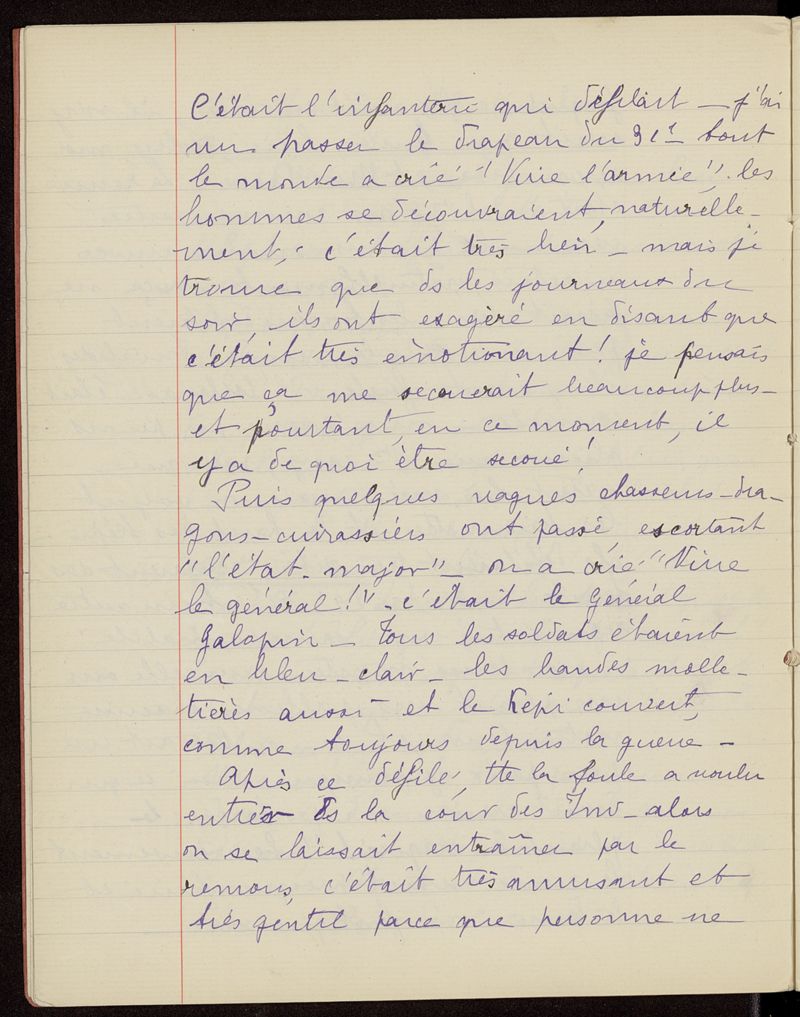 C'était l'infanterie qui défilait – j'ai
vu passer le drapeau du 31e tout
le monde a crié "Vive l'armée", les
hommes se découvraient, naturelle-
ment, c'était très bien – mais je
trouve que ds les journeaux du
soir, ils ont exagéré en disant que
c'était très émotionant ! je pensais
que ça me secouerait beaucoup plus –
et pourtant, en ce moment, il
y a de quoi être secoué !
Puis quelques vagues chasseurs – dra-
gons – cuirassiers ont passé, escortant
"l'état-major" – on a crié "Vive
le général !" – c'était le Général
Galopin – Tous les soldats étaient
en bleu-clair – les bandes molle-
tières aussi et le Képi couvert,
comme toujours depuis la guerre –
Après ce défilé, tte la foule a voulu
entrer ds la cour des Inv – alors
on se laissait entraîner par le
remous, c'était très amusant et
très gentil parce que personne ne